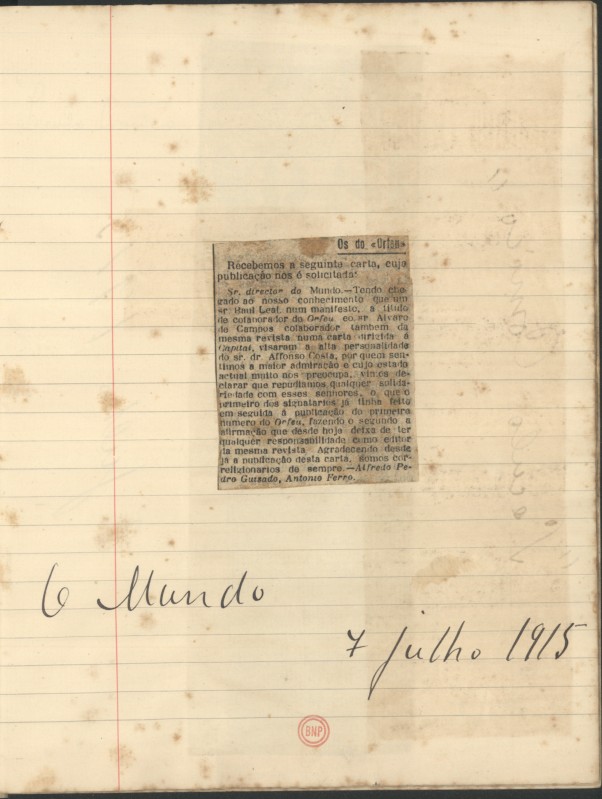 Os do «Orfeu»
Recebemos a seguinte carta, cuja
publicação nos é solicitada:
Sr. director do Mundo.—Tendo che-
gado ao nosso conhecimento que um
sr. Raul Leal, num manifesto, a titulo
de colaborador do Orfeu e o sr. Alvaro
de Campos colaborador tambem da
mesma revista numa carta dirigida á
Capital, visaram a alta personalidade
do sr. dr. Affonso Costa, por quem sen-
timos a maior admiração e cujo estado
actual muito nos preocupa, vimos de-
clarar que repudiamos qualquer solida-
riedade com esses senhores, o que o
primeiro dos signatarios já tinha feito
em seguida á publicação do primeiro
numero do Orfeu, fazendo o segundo a
afirmação que desde hoje deixa de ter
qualquer responsabilidade como editor
da mesma revista. Agradecendo desde
já a publicação desta carta, somos cor-
religionarios de sempre.—Alfredo Pe-
dro Guisado, Antonio Ferro.
O Mundo
7 julho 1915
BNP